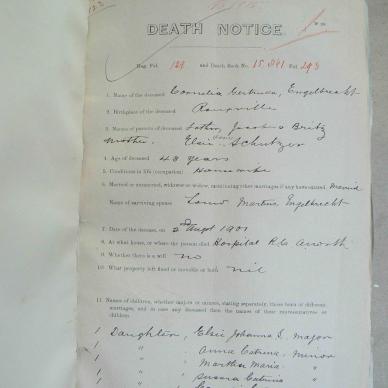 DEATH NOTICE.
Reg. Fol. 129 and Death Book No. 15,841 Fol. 293
1. Name of the deceased Cornelia Gertruida, Engelbrecht
2. Birthplace of the deceased Rouxville
3. Names of parents of deceased Father, Jacobus Britz
Mother. Elsie Schutzer
4. Age of deceased 43 years
5. Conditions in life (occupation) Housewife
6. Married or unmarried, widower or widow, mentioning other marriages if any have existed Married
Name of surviving spouse Louw Martins Engelbrecht
7. Date of the decease, on 2nd Augst 1901
8. At what house, or where the person died Hospital R.C.
9. Whether there is a will no
10. What property left fixed or movable or both nil
11 Names of children, whether majors or minors, stating separately, those born of different
marriages, and in case any deceased then the names of their representatives or
children
1 Daughter, Elsie Johanna S. major
1 " Anna Catrina, Minor
1 " Martha Maria "
1 " Susara Catrina